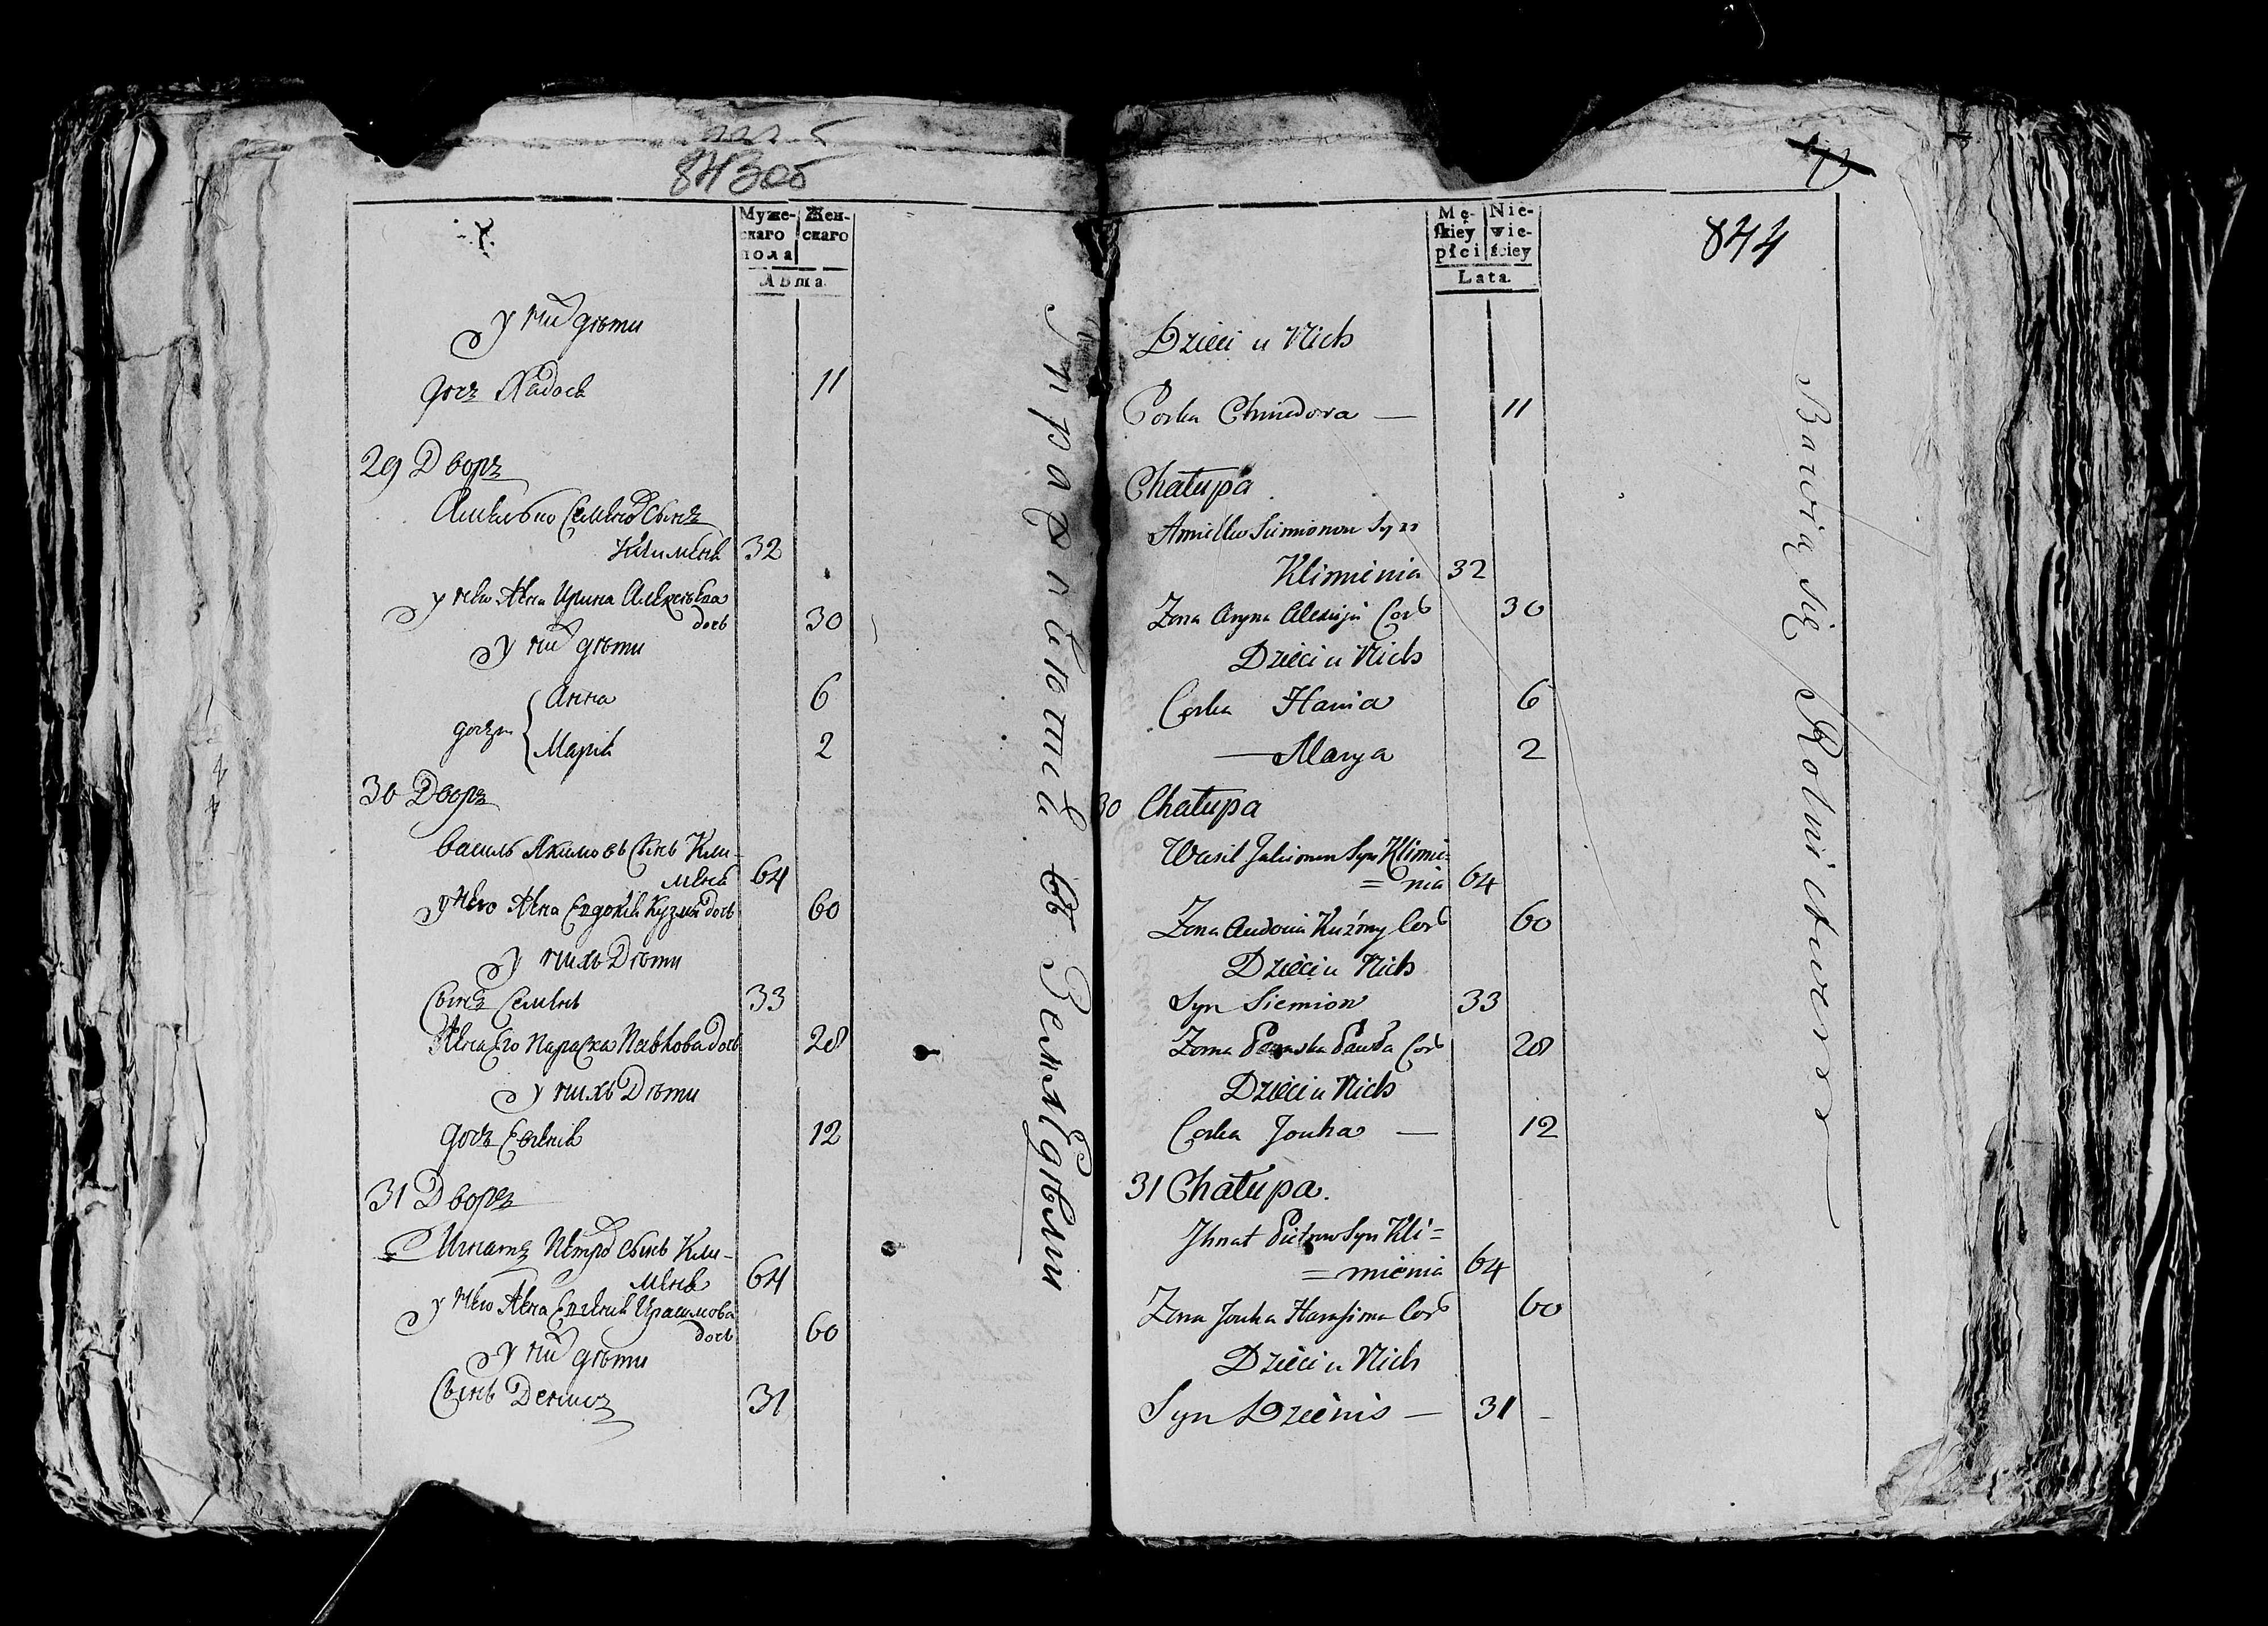 843об
Муже-скаго пола Жен-скаго
Лѣта.
у них дѣти
дочь Хадося 11
29 Дворъ
Амельян Семенов Сынъ
Клименя 32
у него Жена Ирина Алексеева
дочь 30
у них дѣти
дочери
Анна 6
Марія 2
30 Дворъ
Василь Якимовъ Сынъ Кли-
меня 64
у него Жена Евдокія Кузмы дочь 60
у нихъ Дѣти
Сынъ Семенъ 33
Жена Его Параска Павлова дочь 28
у нихъ Дѣти
дочь Евгенія 12
31 Дворъ
Игнатъ Петров Сынъ Кли-
меня 64
у него Жена Евгенія Ирашимова
дочь 60
у них дѣти
Сынъ Денисъ 31
Упражнѣютця въ ЗемлЕдѣліи
844
Mę-skiey płci Nie-wie-ściey
Lata.
Dzieci u Nich
Corka Chwiedora — 11
Chałupa
Syn
Klimienia 32
Zona Aryna Alexieja Cor 30
Dzieci u Nich
Corka Hania 6
— Marya 2
30 Chałupa
Wasil Jakimow Syn Klimie=
= nia 64
Zona Audocia Kuźmy Cor 60
Dzieci u Nich
Syn Siemion 33
Zona Paraska Pawła Cor 28
Dzieci u Nich
Corka Jouha — 12
31 Chałupa.
Jhnat Piotrow Syn Kli=
= mienia 64
Zona Jouha Harasima Cor 60
Dzieci u Nich
Syn Dzienis — 31 -
Bawią się Rolnictwem